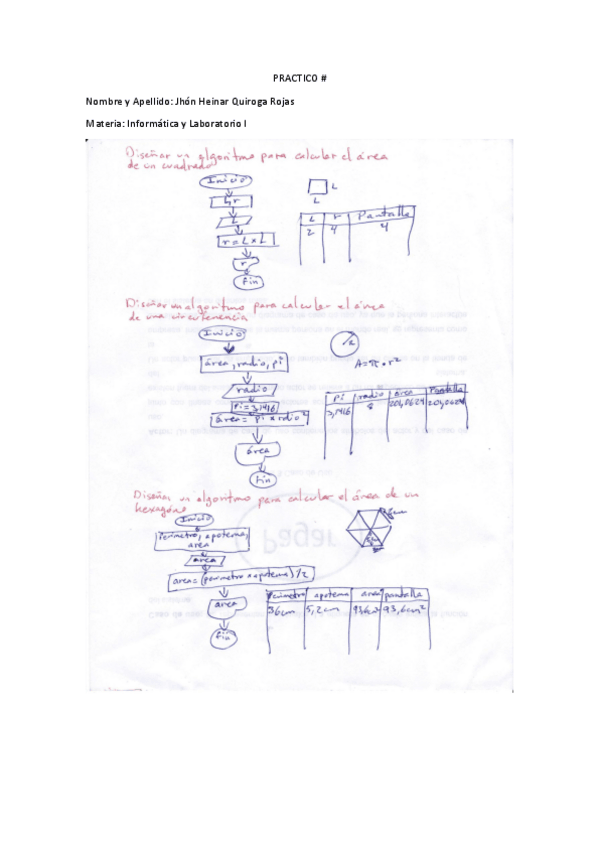 PRACTICO #
Nombre y Apellido: Jhón Heinar Quiroga Rojas
Materia: Informática y Laboratorio I
Diseñar un algoritmo para calcular el área
de un cuadrado
Inicio
L,r
L
r = L x L
r
fin
L
L
L r Pantalla
2 4 4
Diseñar un algoritmo para calcular el área
de una circunferencia
Inicio
área, radio, pi
radio
Pi = 3,1416
área = Pi * rdio²
área
fin
A = π * r²
Pi radio área Pantalla
3,1416 8 201,0624 201,0624
Diseñar un algoritmo para calcular el área de un
hexagóno
Inicio
Perimetro, apotema,
area
area
area = (perimetro * apotema)/2
area
fin
Perimetro apotema area pantalla
36cm 5,2cm 93,6cm² 93,6cm²
Pagar